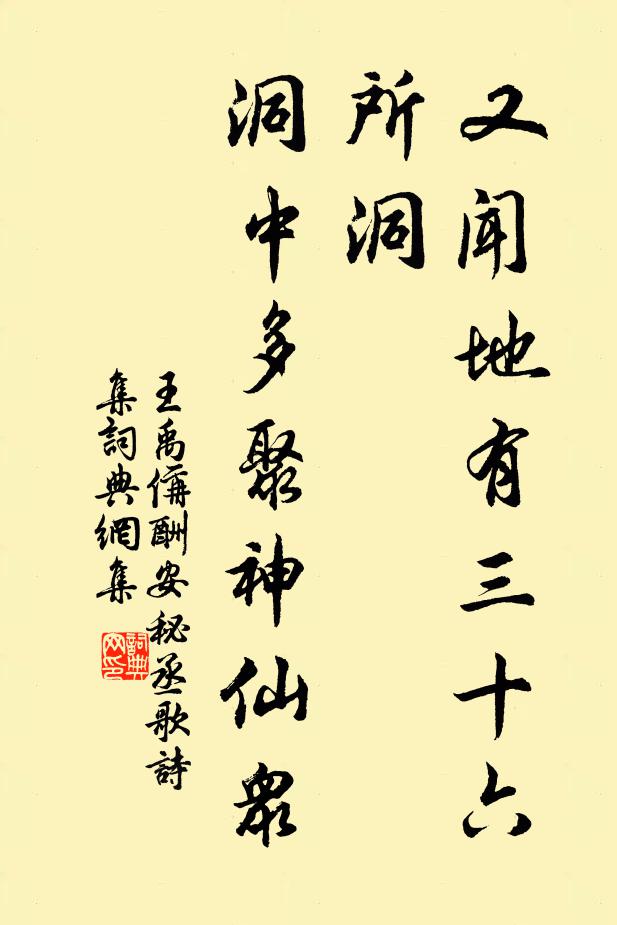 又聞地有三十六
所洞
洞中多聚神仙眾
王禹偁酬安秘丞歌詩
集詞典網集
詞典网印